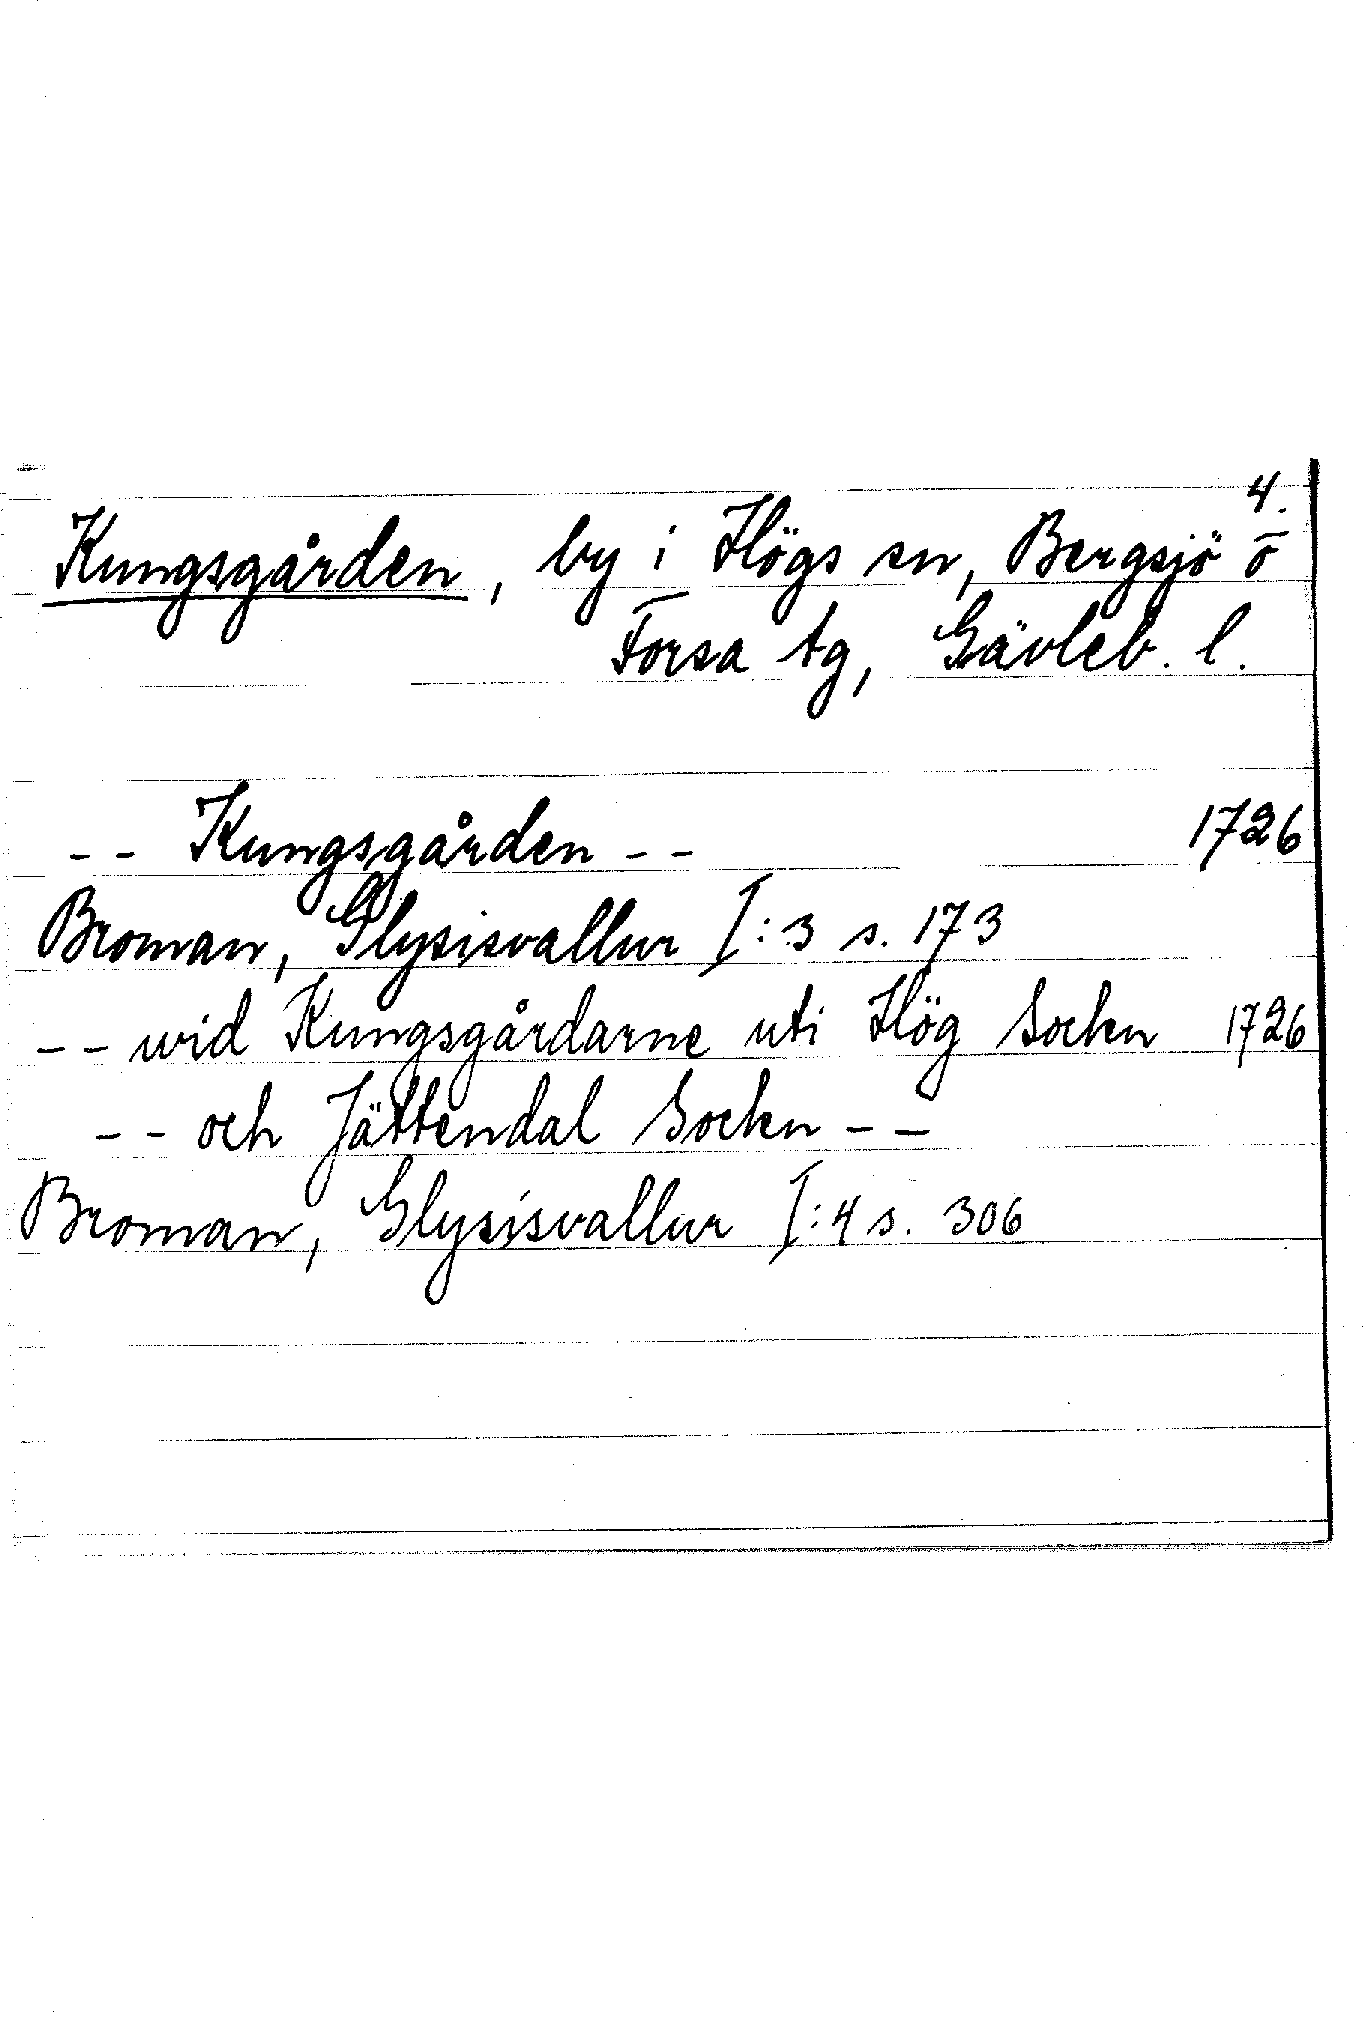 4.
Kungsgården, by i Högs sn, Bergsjö o
Forsa tg, Gävleb. l.
-- Kungsgården -- 1726
Broman, Glysisvallur I:3 s. 173
-- wid Kungsgårdarne uti Hög Socken 1726
-- och Jättendal Socken --
Broman, Glysisvallur I:4 s. 306